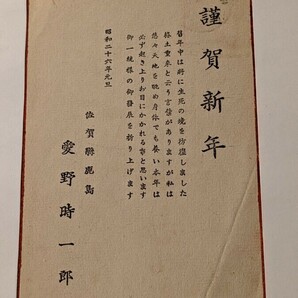 謹賀新年
昔年中は将に生死の境を彷徨しました
捲土重来と云う言葉がありますが私は
悠々天地を眺め身体でも養い本年は
必ず起き上りお目にかかれる事と思います
御一統様の御発展を祈り上げます
昭和二十六年元旦
佐賀縣鹿島
愛野時一郎